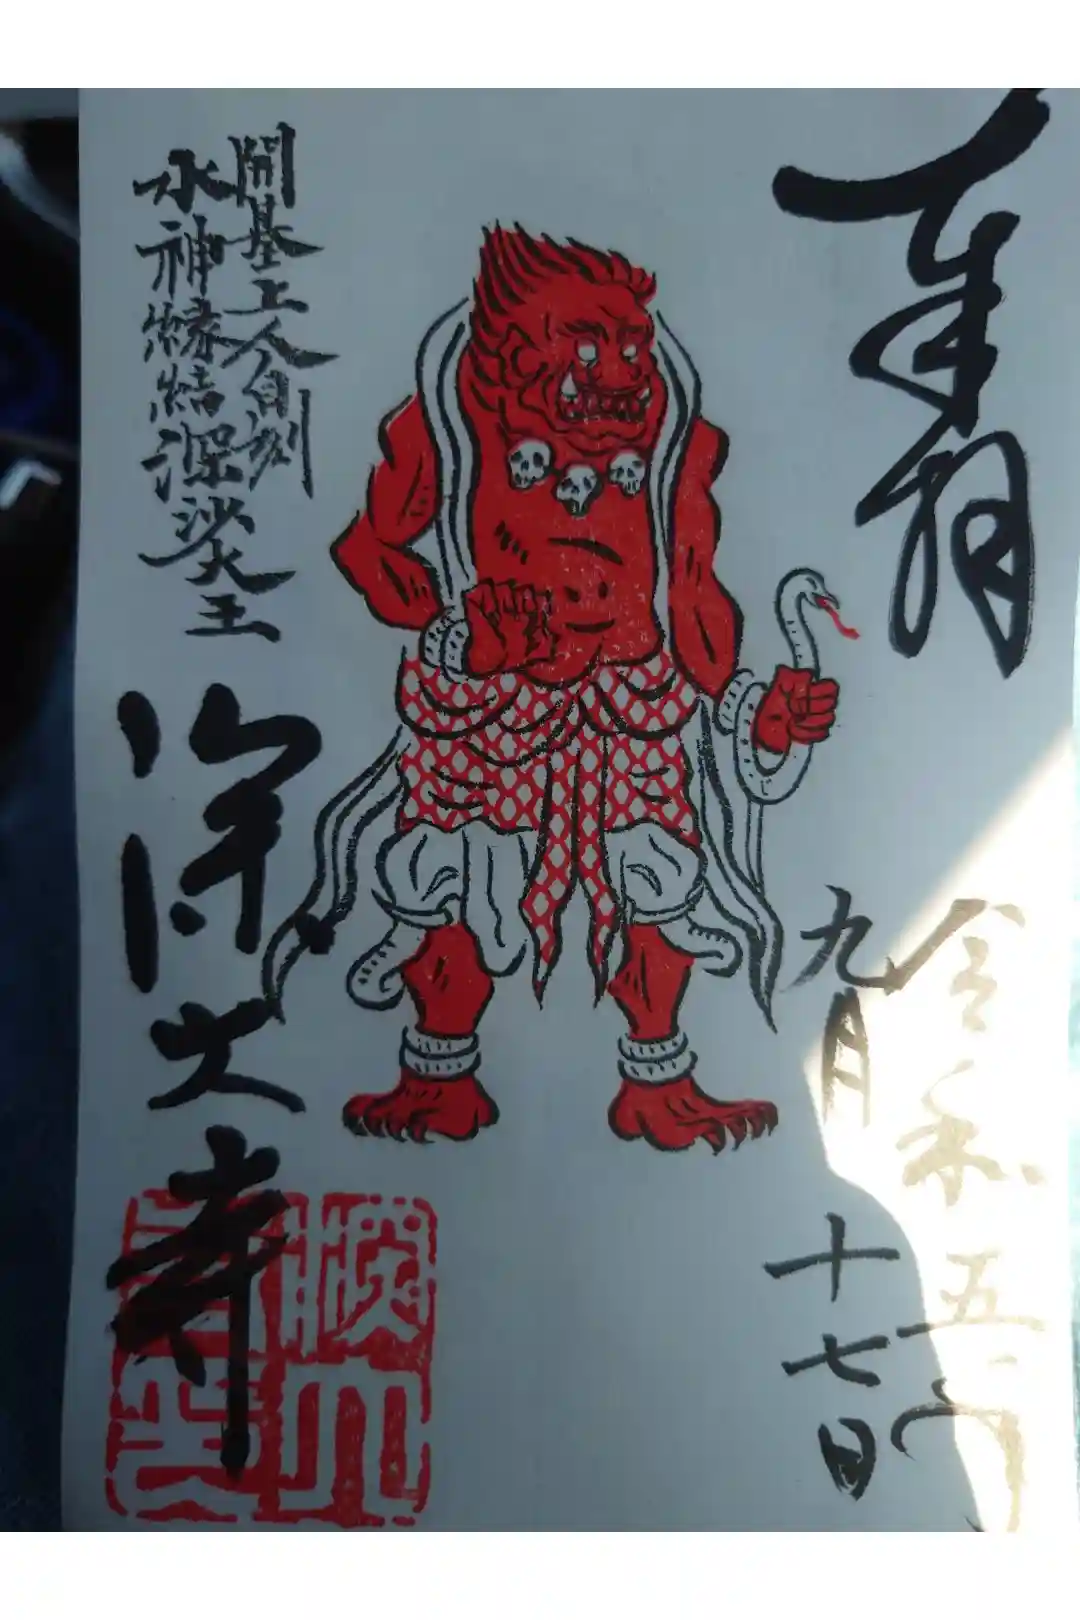 奉拝
令和五年
九月十七日
開基上人自刻
水神縁結深沙大王
深大寺